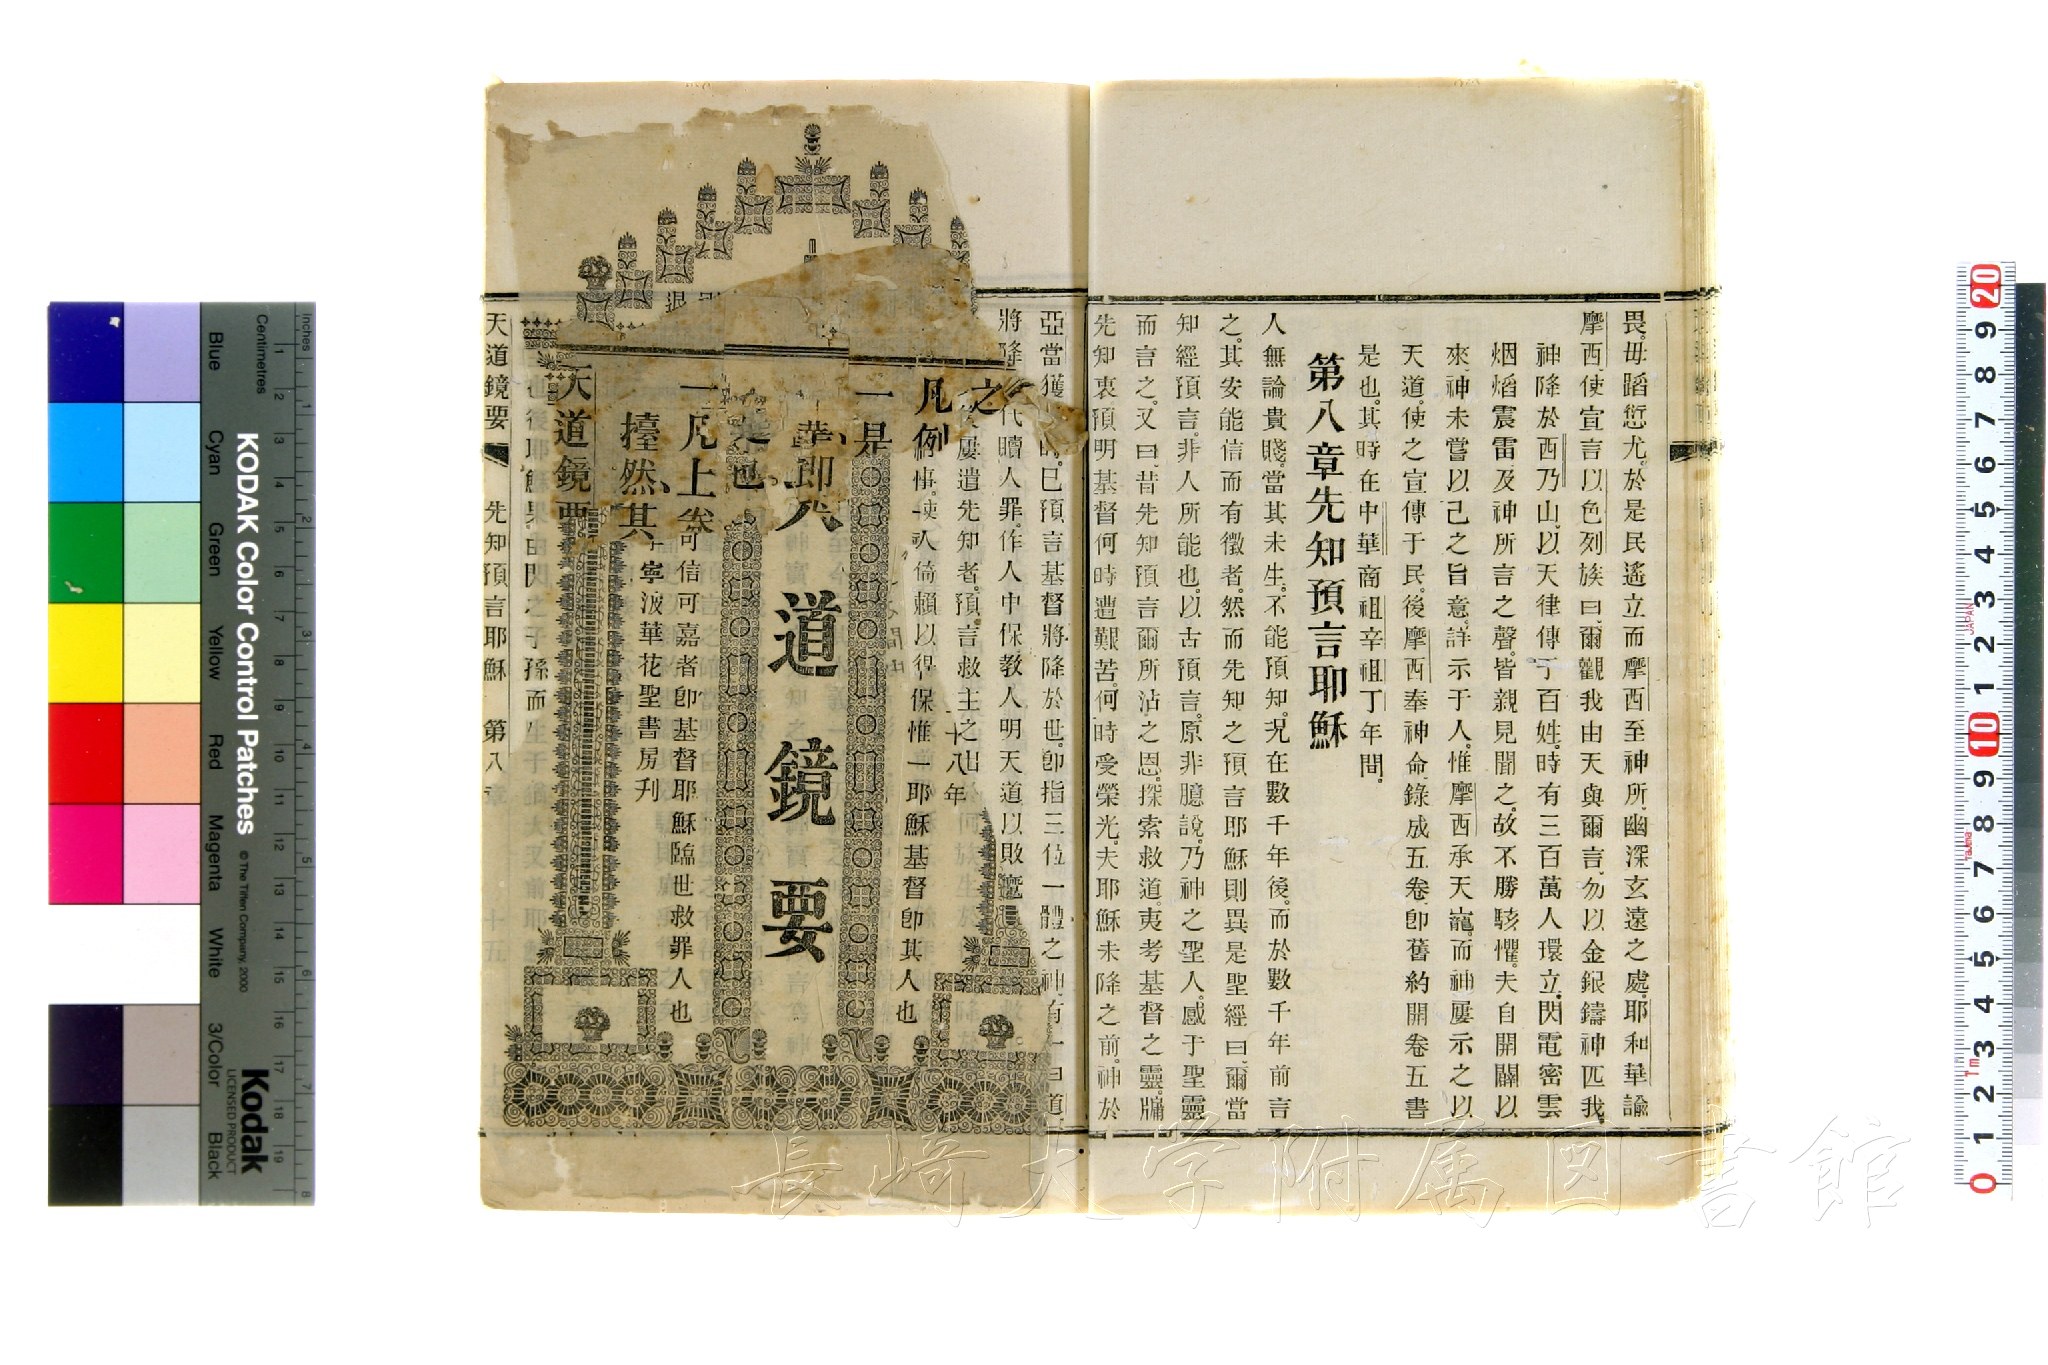 畏毋蹈愆尤於是民遙立而摩西至神所幽深玄遠之處耶和華諭
摩西使宣言以色列族曰爾觀我由天與爾言勿以金銀鑄神匹我
神降於西乃山以天律傳于百姓時有三百萬人環立閃電密雲
烟熖震雷及神所言之聲皆親見聞之故不勝駭懼夫自開闢以
來神未嘗以己之旨意詳示于人惟摩西承天寵而神屢示之以
天道使之宣傳于民後摩西奉神命錄成五卷卽舊約開卷五書
是也其時在中華商祖辛祖丁年間
第八章先知預言耶穌
人無論貴賤當其未生不能預知況在數千年後而於數千年前言
之其安能信而有徵者然而先知之預言耶穌則異是聖經曰爾當
知經預言非人所能也以古預言原非臆說乃神之聖人感于聖靈
而言之又曰昔先知預言爾所沾之恩探索救道夷考基督之靈牖
先知衷預明基督何時遭艱苦何時受榮光夫耶穌未降之前神於
亞當獲 已預言基督將降於世卽指三位一體之神有一曰道
將降 代贖人罪作人中保教人明天道以敗魔
之 屢遣先知者預言救主之出
十八年
凡例
使人倚賴以得保惟一耶穌基督卽其人也
一是
道鏡要
一凡上 可信可嘉者卽基督耶穌臨世救罪人也
擡然其
寧波華花聖書房刋
天道鏡要
也後耶穌果由閃之子孫而生
天道鏡要 先知預言耶穌 第八章 十五
KODAK Color Control Patches
© The Tiffen Company, 2000
Kodak
LICENSED PRODUCT
Centimetres
Inches
Blue
Cyan
Green
Yellow
Red
Magenta
White
3/Color
Black
1 2 3 4 5 6 7 8 9 10 11 12 13 14 15 16 17 18 19
1 2 3 4 5 6 7 8
0 1 2 3 4 5 6 7 8 9 10 1 2 3 4 5 6 7 8 9 20
JAPAN
長崎大学附属図書館